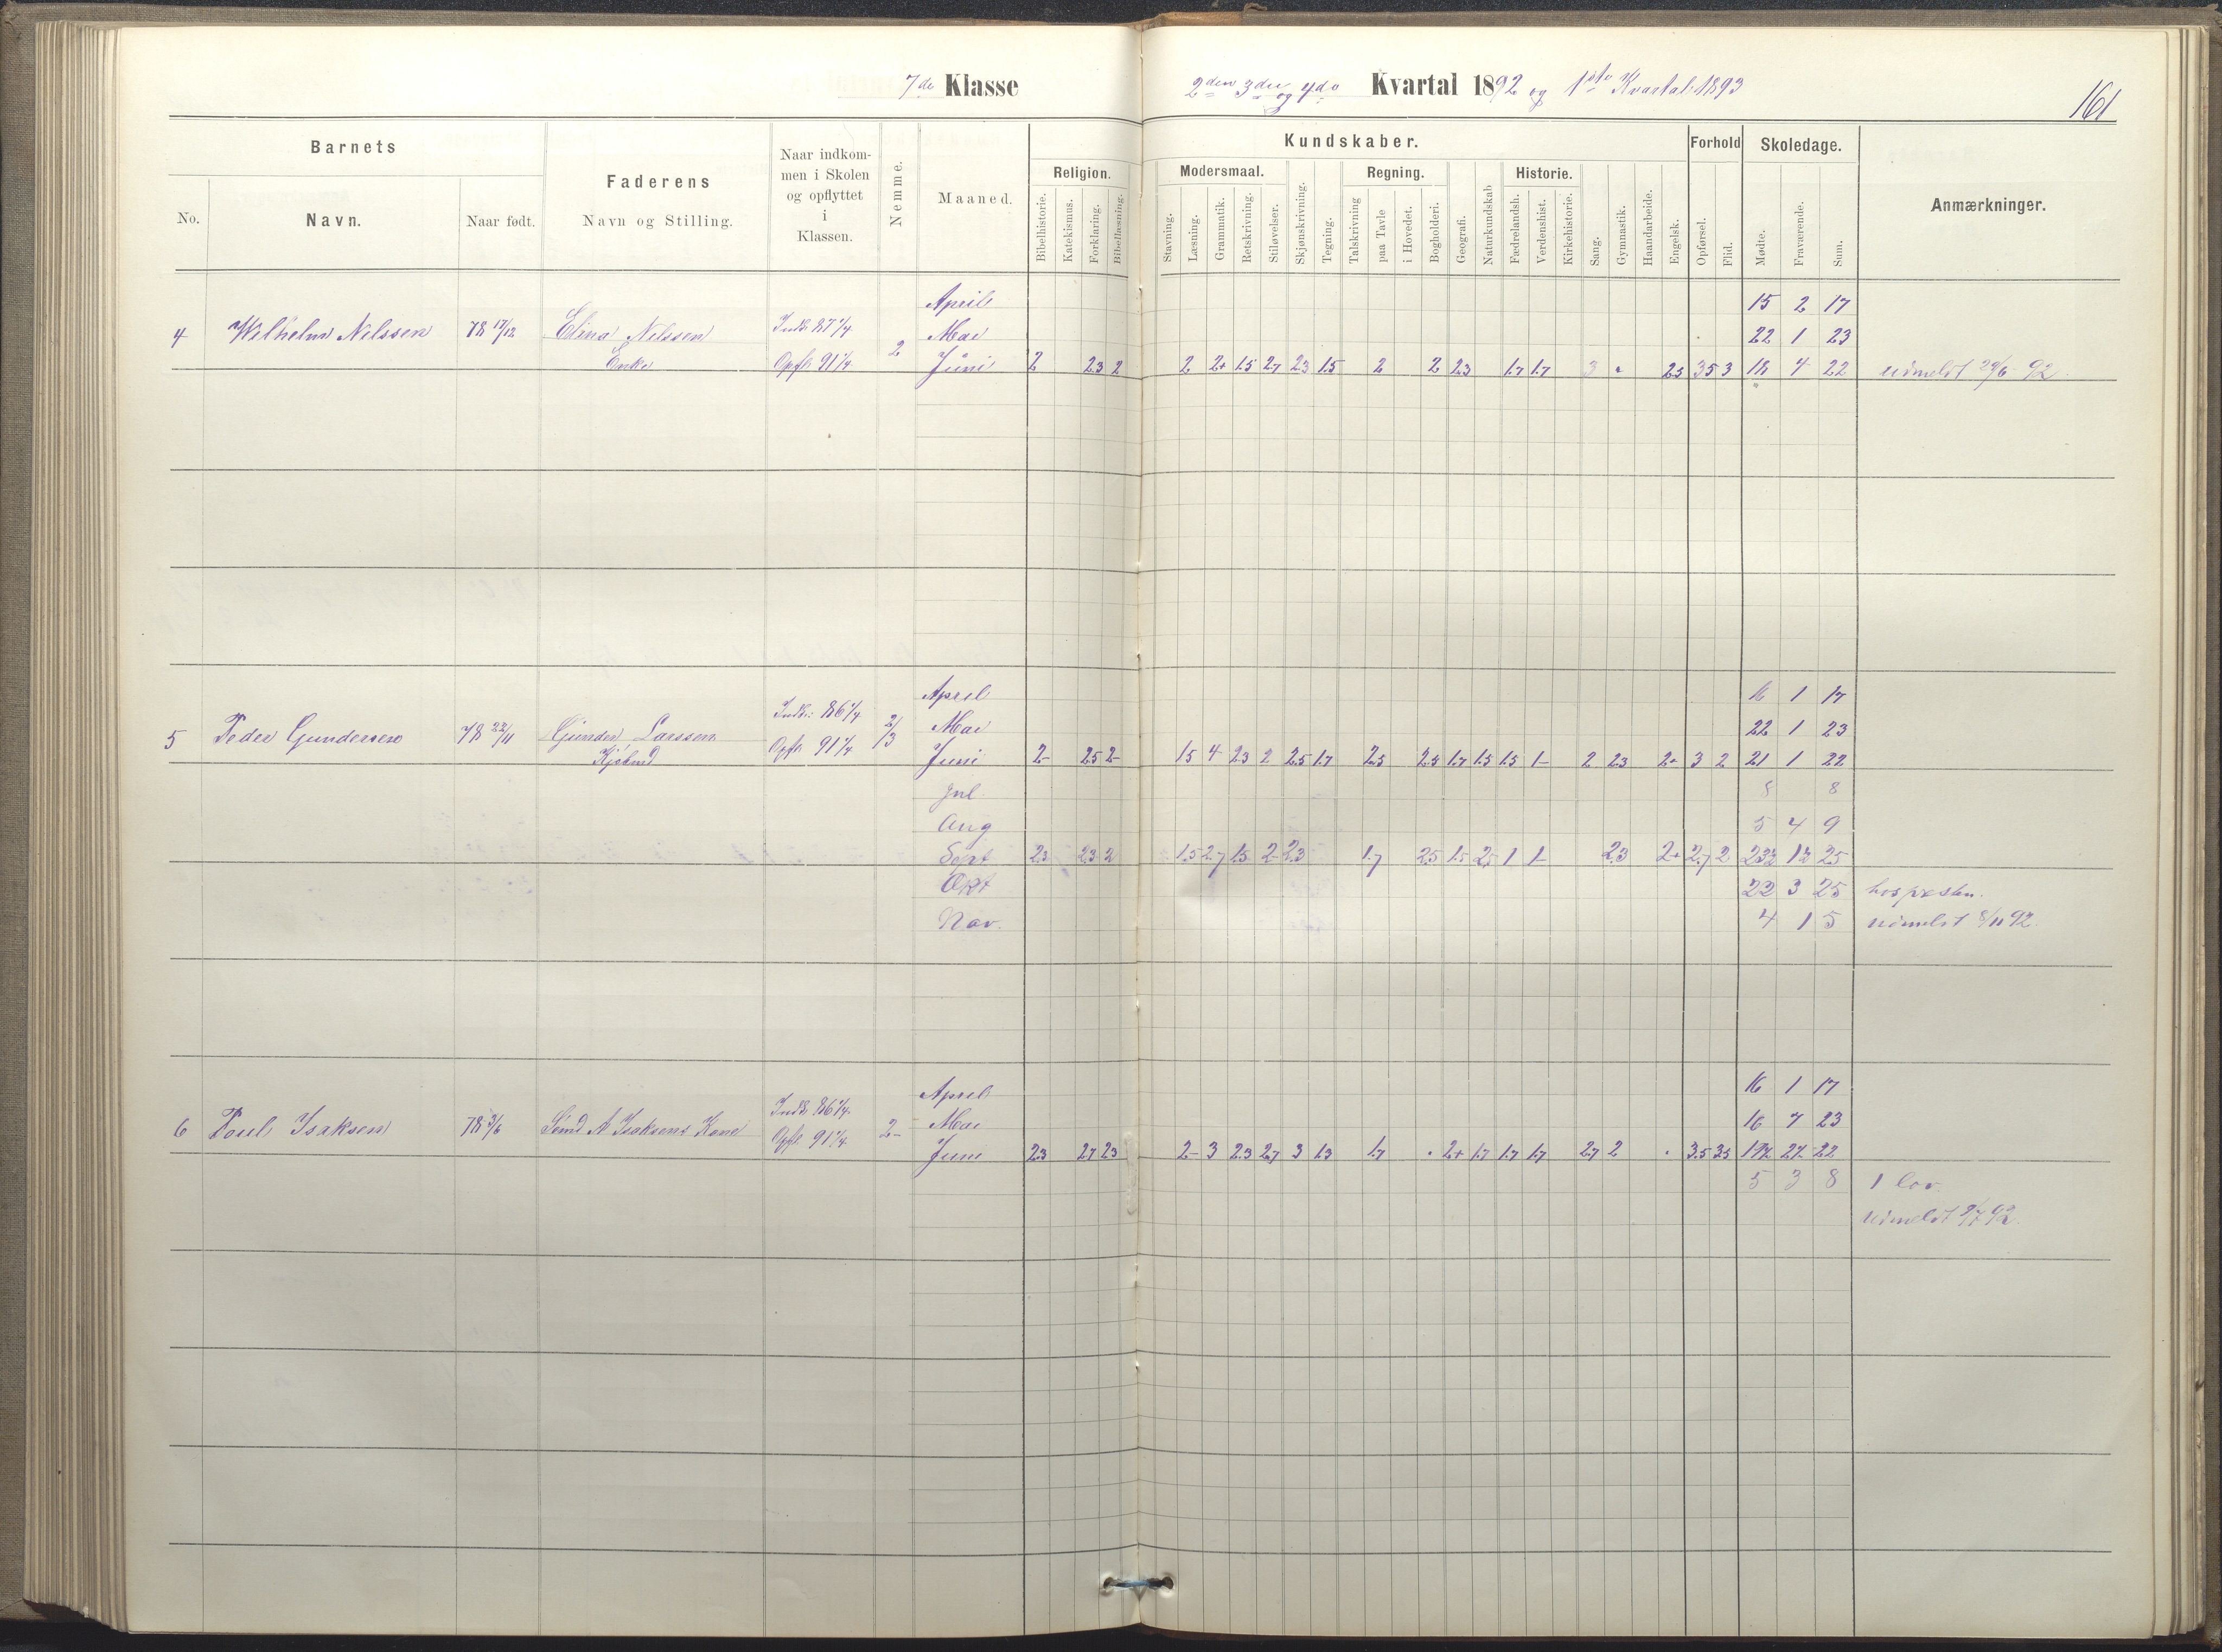 7de Klasse
2den 3die og 4de Kvartal 1892 og 1ste Kvartal 1893
161
Barnets
No.
Navn.
Naar født.
Faderens
Navn og Stilling.
Naar indkom-
men i Skolen
og opflyttet
i
Klassen.
Nemme.
Maaned.
Kundskaber.
Religion.
Bibelhistorie.
Katekismus.
Forklaring.
Bibellæsning.
Modersmaal.
Stavning.
Læsning.
Grammatik.
Retskrivning.
Stiløvelser.
Skjønskrivning.
Tegning.
Regning.
Talskrivning
paa Tavle
i Hovedet.
Bogholderi.
Geografi.
Naturkundskab
Historie.
Fædrelandsh.
Verdenshist.
Kirkehistorie.
Sang.
Gymnastik.
Haandarbeide.
Engelsk.
Forhold
Opførsel.
Flid.
Skoledage.
Mødte.
Fraværende.
Sum.
Anmærkninger.
April 15 2 17
4 Wilhelm Nilssen 78 17/12 Elina Nilssen Indk. 87 1/4 2 Mai 22 1 23
Enke Opfl. 91 1/4 Juni 2 2.3 2 2 2+ 1.5 2.7 2.3 1.5 2 2 2.3 1.7 1.7 3 2.3 3.5 3 18 4 22 udmeldt 29/6 92
April 16 1 17
5 Peder Gundersen 78 22/11 Gunder Larssen Indk: 86 1/4 2/3 Mai 22 1 23
Opfl. 91 1/4 Juni 2- 2.5 2- 1.5 4 2.3 2 2.5 1.7 2.5 2.5 1.7 1.5 1.5 1- 2 2.3 2+ 3 2 21 1 22
Jul. 8 8
Aug 5 4 9
Sept 2.3 2.3 2 1.5 2.7 1.5 2- 2.3 1.7 2.5 1.5 2.5 1 1- 2.3 2+ 2.7 2 23½ 1½ 25
Okt 22 3 25
Nov. 4 1 5 udmeldt 8/11 92
April 16 1 17
6 Poul Isaksen 78 3/6 Sømd A Isaksens Kone Indk. 86 1/4 2- Mai 16 7 23
Opfl. 91 1/4 Juni 2.3 2.7 2.3 2- 3 2.3 2.7 3 1.3 1.7 2+ 1.7 1.7 1.7 2.7 2 3.5 3.5 19½ 2½ 22
5 3 8 1 lov.
udmeldt 9/7 92.